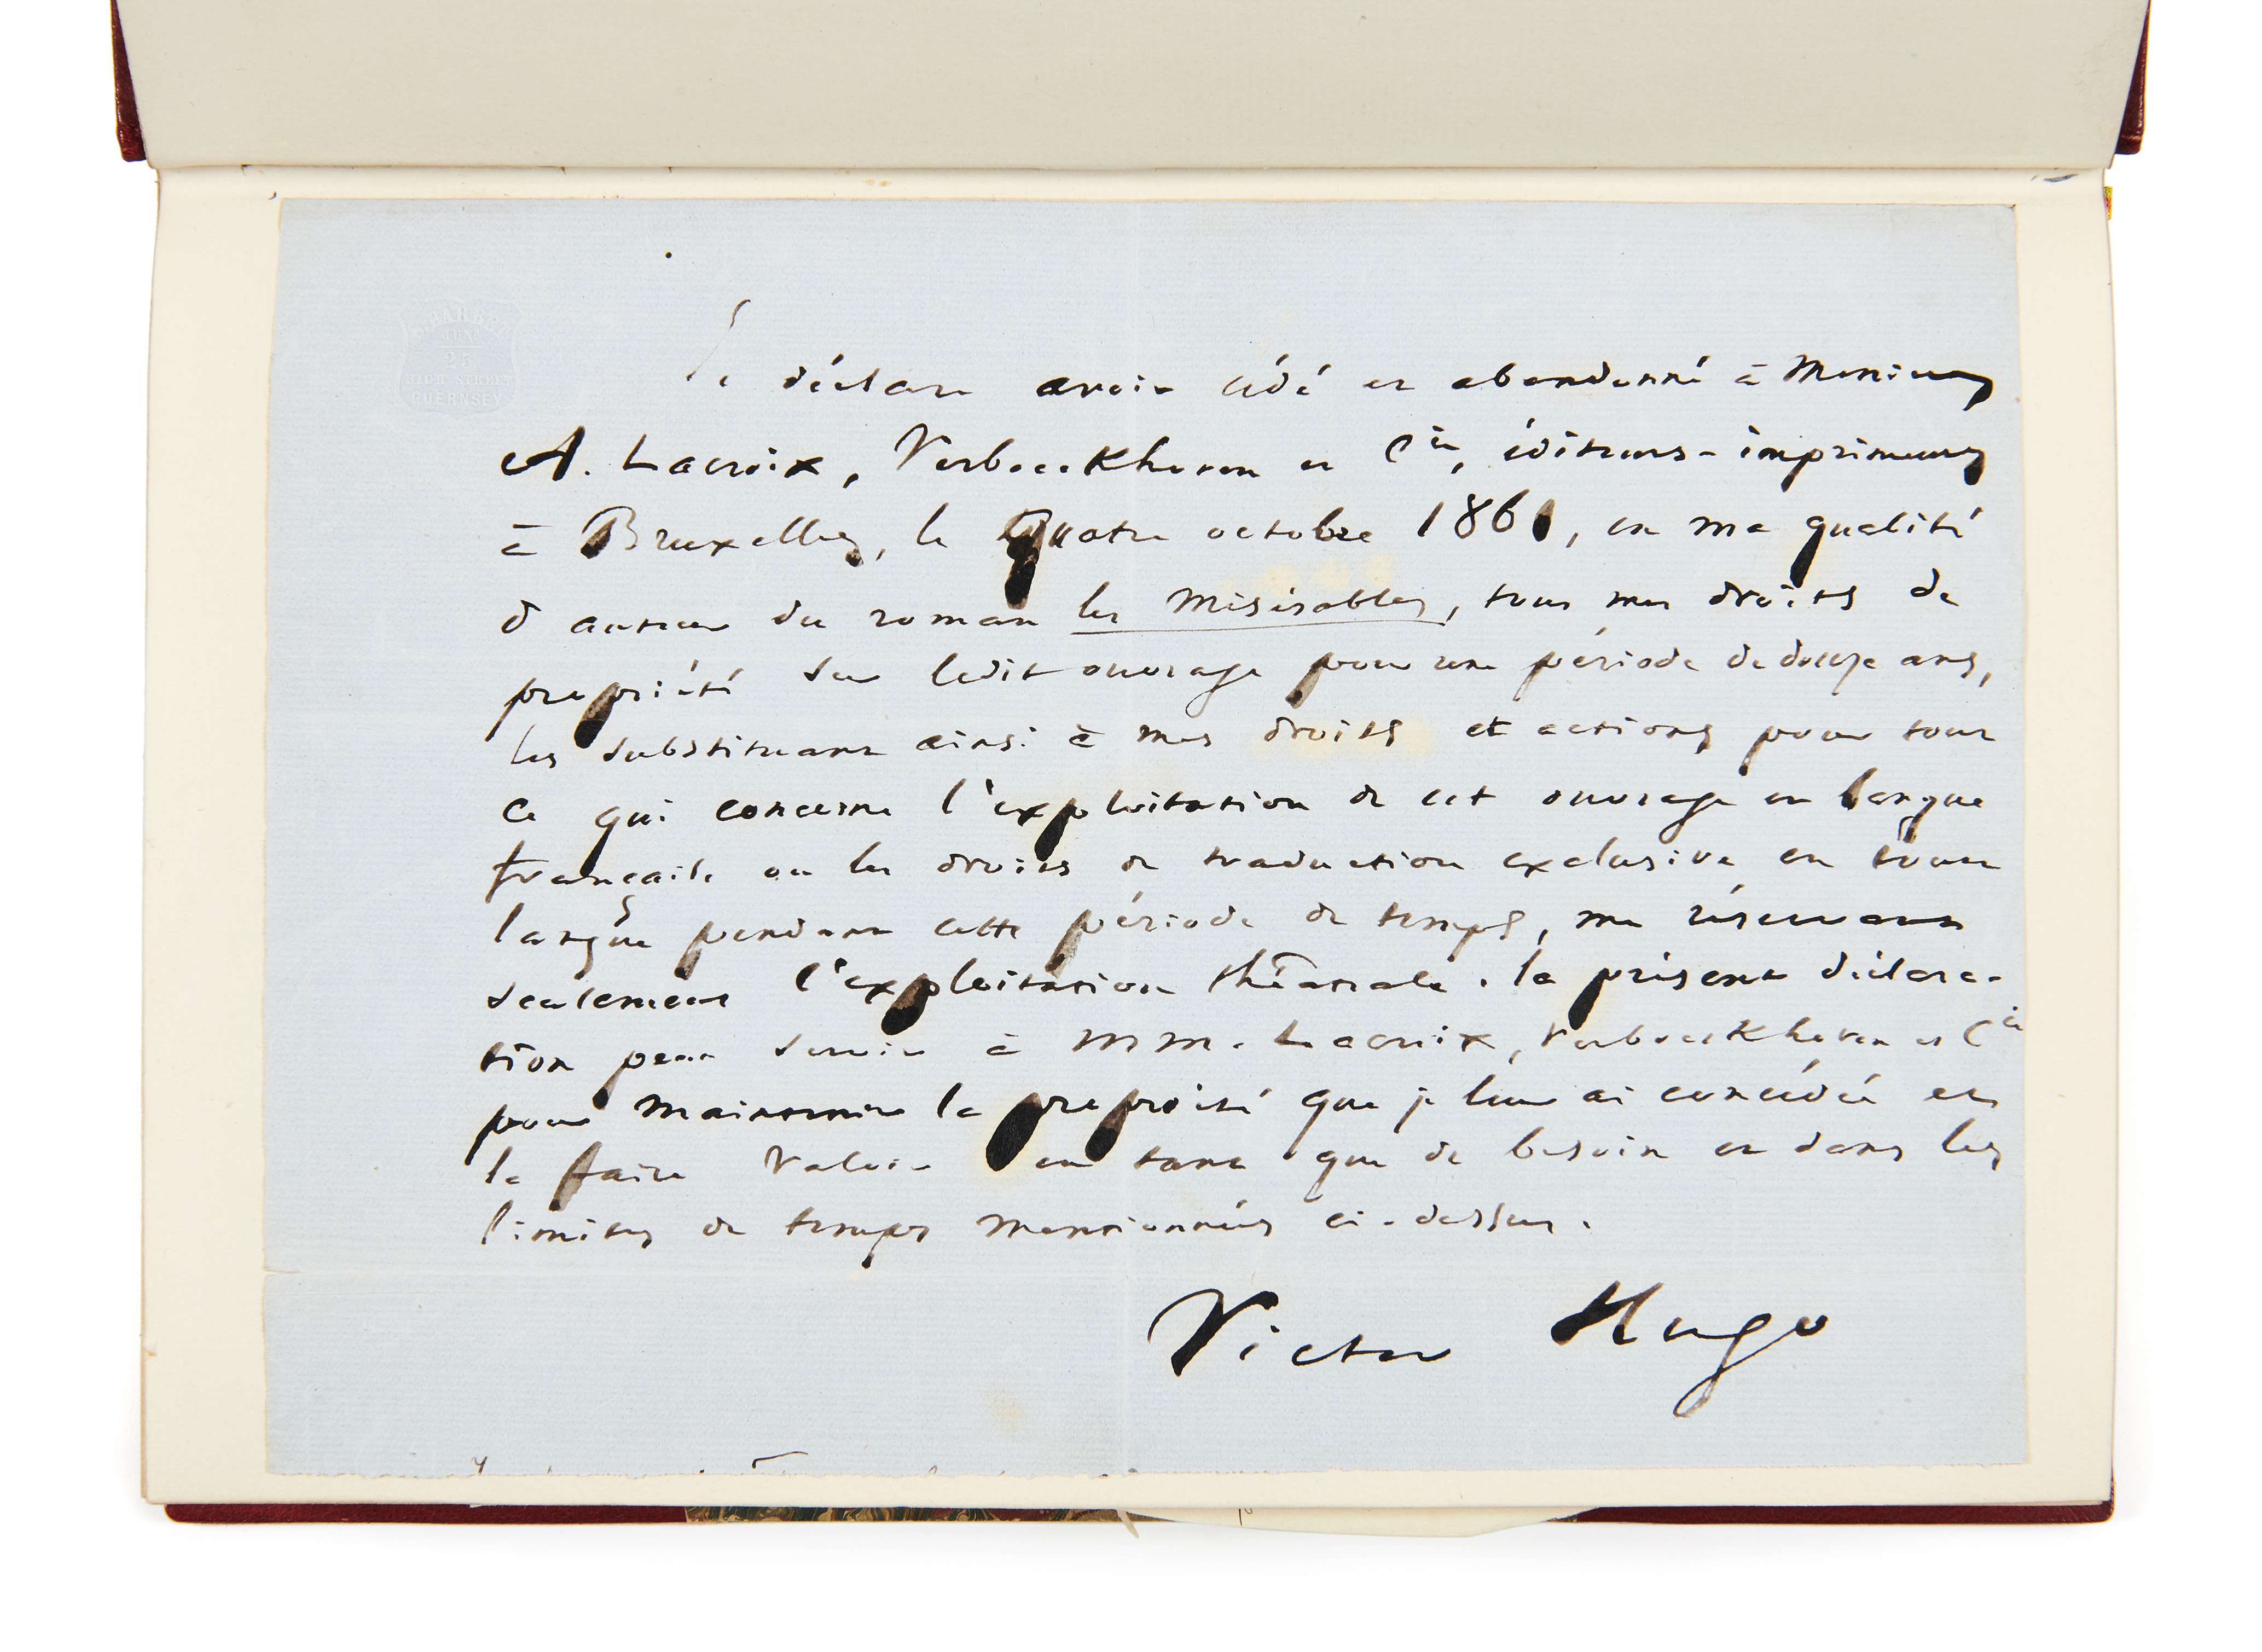 BARBET
JUNR
25
HIGH STREET
GUERNSEY
Je déclare avoir cédé et abandonné à Messieurs
A. Lacroix, Verboeckhoven et Cie, éditeurs-imprimeurs
à Bruxelles, le quatre octobre 1861, en ma qualité
d'auteur du roman les Misérables, tous mes droits de
propriété sur ledit ouvrage pour une période de douze ans,
les substituant ainsi à mes droits et actions pour tout
ce qui concerne l'exploitation de cet ouvrage en langue
française ou les droits de traduction exclusive en toute
langue pendant cette période de temps, me réservant
seulement l'exploitation théâtrale. la présente déclara-
tion peut servir à MM. Lacroix, Verboeckhoven et Cie
pour maintenir la propriété que je leur ai concédée et
la faire valoir en tant que de besoin et dans les
limites de temps mentionnées ci-dessus.
Victor Hugo